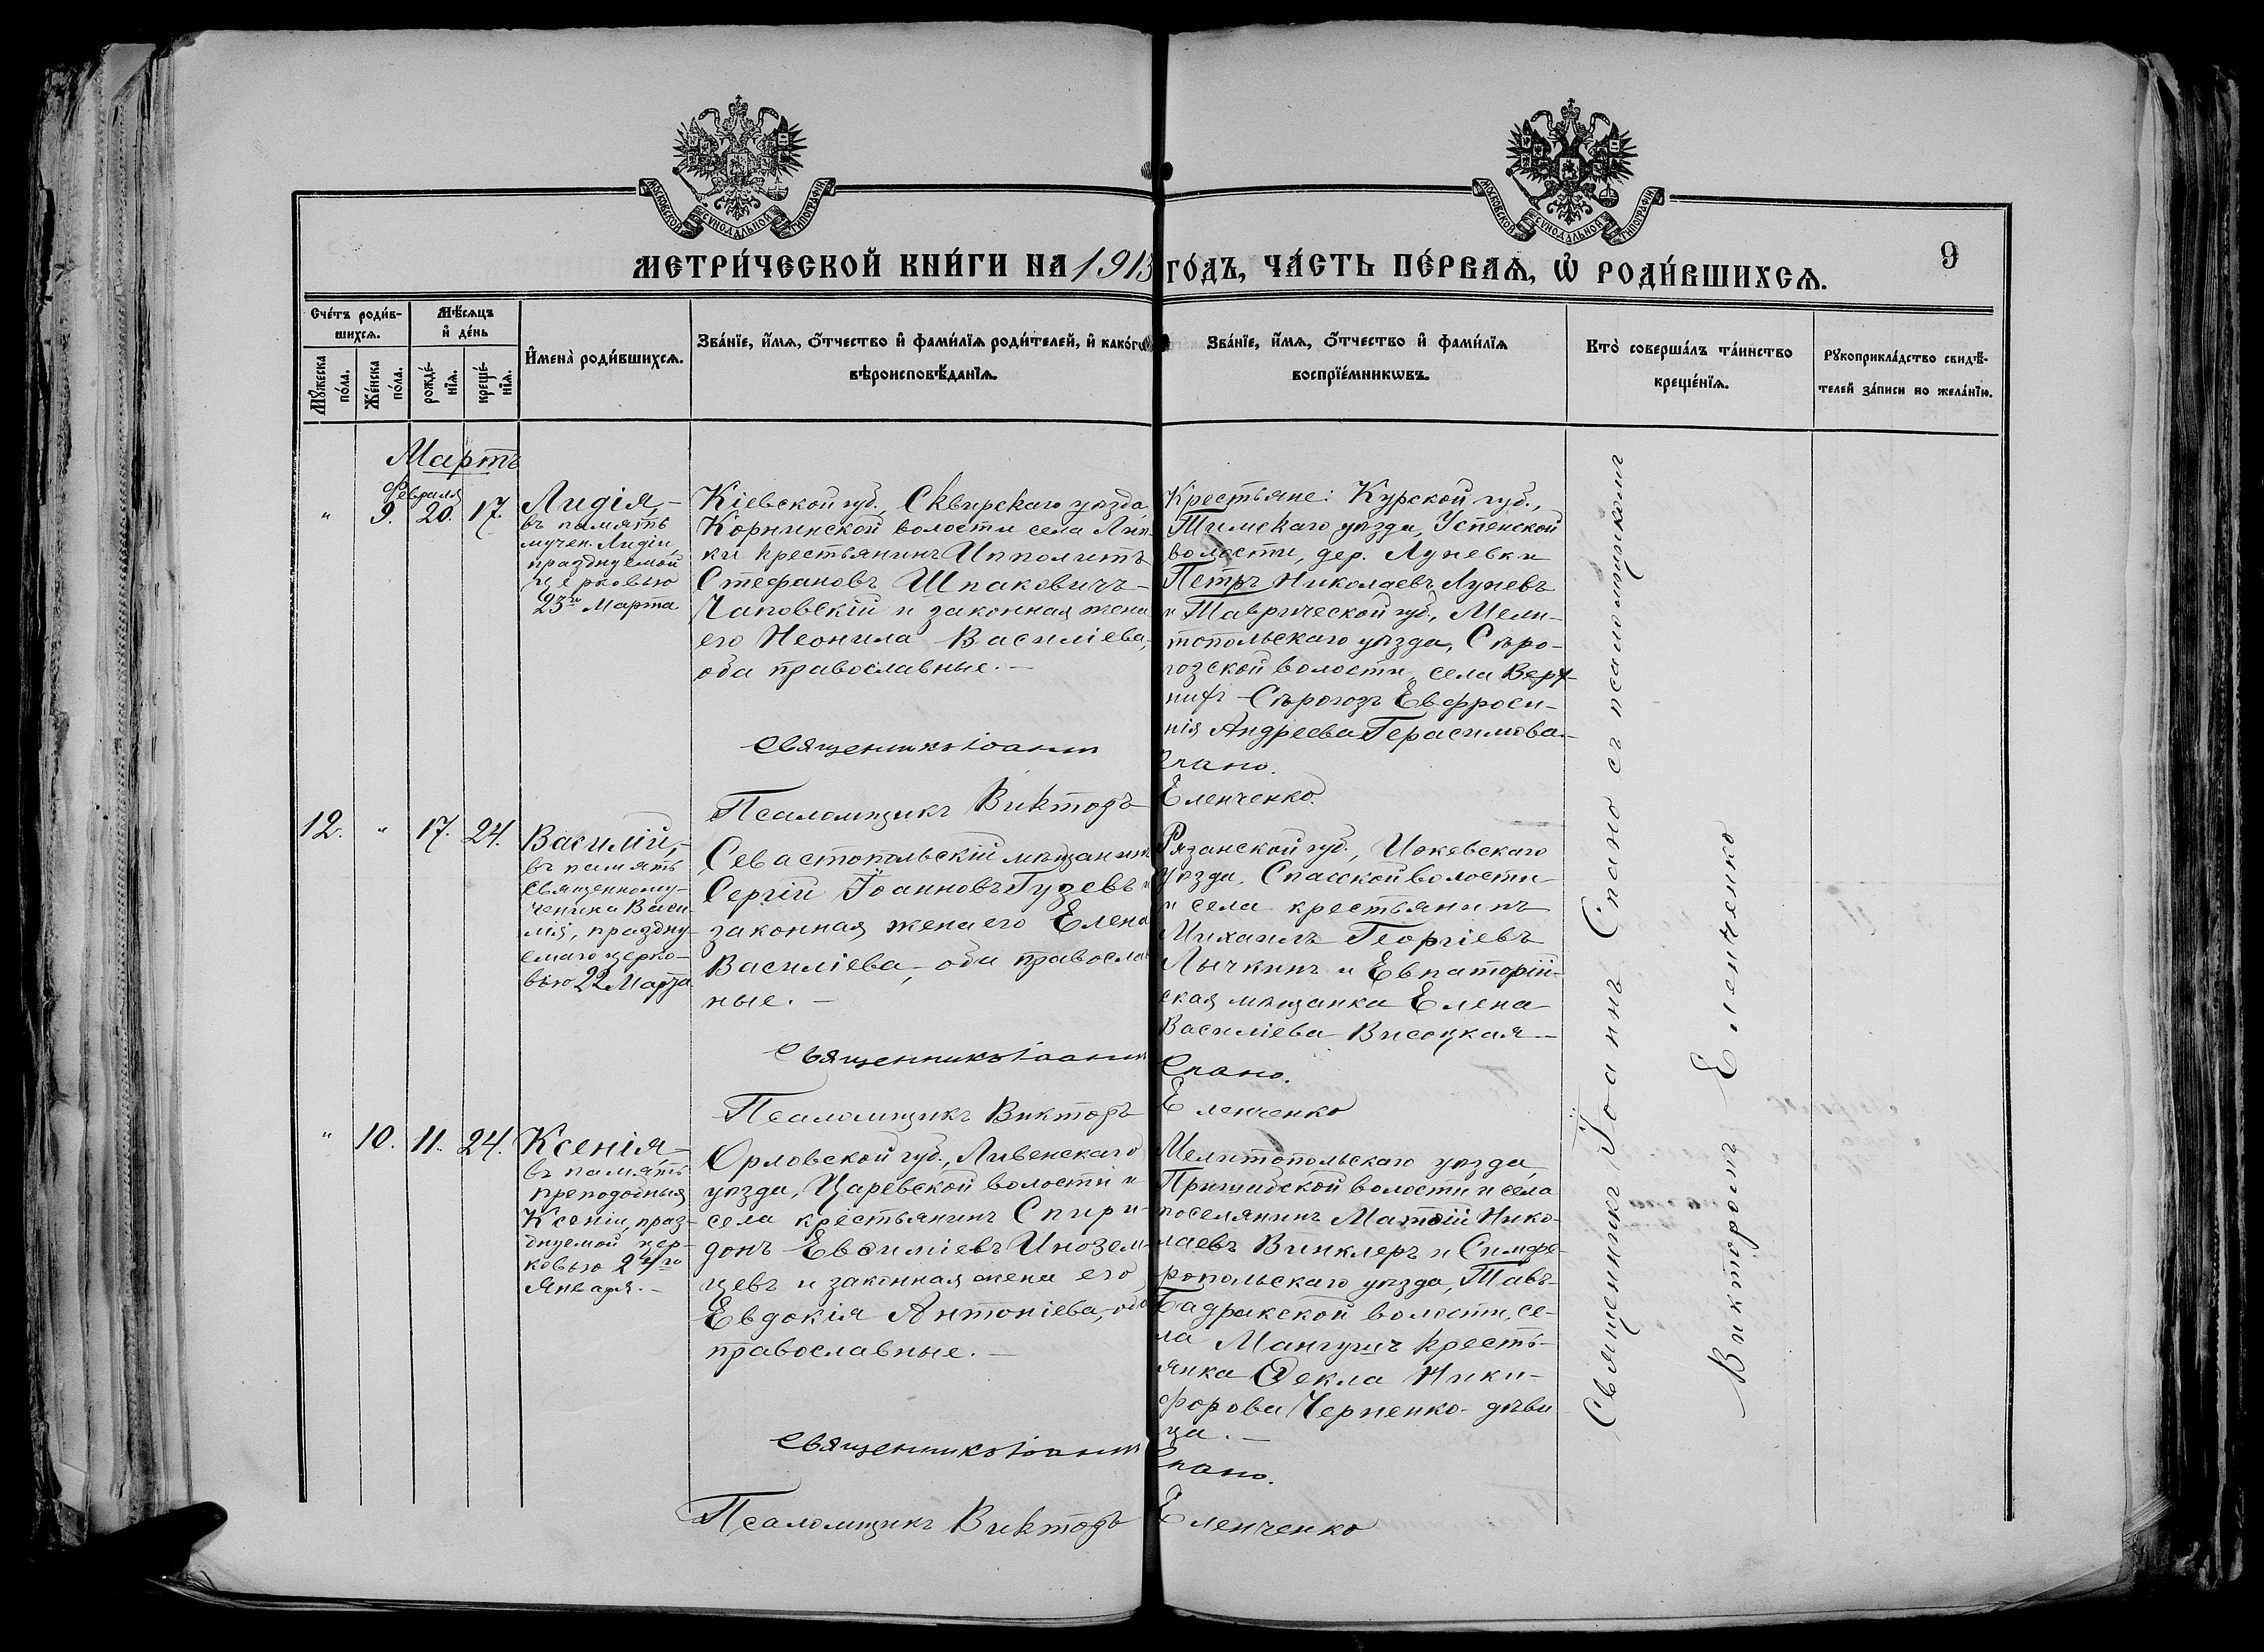 МОСКОВСКОЙ СѴНОДАЛЬНОЙ ТИПОГРАФІИ
МОСКОВСКОЙ СѴНОДАЛЬНОЙ ТИПОГРАФІИ
МЕТРИ́ЧЕСКОЙ КНИ́ГИ НА 1913 ГО́ДЪ, ЧА́СТЬ ПЕ́РВАѦ, Ѡ҆ РОДИ́ВШИХСѦ.
9
Сче́тъ роди́в-
шихсѧ.
Мꙋ́жеска
по́ла.
Же́нска
по́ла.
Мѣ́сѧцъ
и҆ де́нь
рожде́-
нїѧ.
креще́-
нїѧ.
И҆мена̀ роди́вшихсѧ.
Зва́нїе, и҆́мѧ, ѻ҆́тчество и҆ фами́лїѧ роди́телей, и҆ како́гѡ
вѣроисповѣ́данїѧ.
Зва́нїе, и҆́мѧ, ѻ҆́тчество и҆ фами́лїѧ
воспрїе́мникѡвъ.
Кто̀ соверша́лъ та́инство
креще́нїѧ.
Рꙋкоприкла́дство свидѣ́-
телей за́писи по жела́нїю.
Мартъ
Февраля
" 9. 20. 17.
Лидія,-
въ память
мучен. Лидіи,
празднуемой
церковью
23го Марта
Кіевской губ., Сквирскаго уѣзда,
Корнинской волости села Лип-
ки крестьянинъ Ипполитъ
Стефановъ Шпаковичъ-
Чаповскій и законная жена
его Неонила Василіева,
оба православные.-
Крестьяне: Курской губ.,
Тимскаго уѣзда, Успенской
волости, дер. Луневки
Петръ Николаевъ Луневъ
и Таврической губ., Мели-
топольскаго уѣзда, Сѣро-
гозской волости, села Верх-
нихъ-Сѣрогозъ Евфроси-
нія Андреева Герасимова.-
Священникъ Іоаннъ Спано.
Псаломщикъ Викторъ Еленченко.
12. " 17. 24.
Василій,-
въ память
священному-
ченика Васи-
лія, праздну-
емаго церко-
вью 22 Марта
Севастопольскій мѣщанинъ
Сергій Іоанновъ Гузевъ и
законная жена его Елена
Василіева,- оба православ
ные.-
Рязанской губ.,
уѣзда, Спасской волости
и села крестьянинъ
Михаилъ Георгіевъ
Лычкинъ и Евпаторій-
ская мѣщанка Елена
Василіева Висоцкая.-
Священникъ Іоаннъ Спано.
Псаломщикъ Викторъ Еленченко
" 10. 11. 24.
Ксенія-
въ память
преподобныя
Ксеніи, праз-
днуемой цер-
ковью 24го
Января.-
Орловской губ., Ливенскаго
уѣзда, Царевской волости и
села крестьянинъ Спири-
донъ Евѳиміевъ Инозем-
цевъ и законная жена его
Евдокія Антоніева,- оба
православные.-
Мелитопольскаго уѣзда,
Пришибской волости и села
поселянинъ Матѳій Нико-
лаевъ Винклеръ и Симфе-
ропольскаго уѣзда, Тавъ-
Бадракской волости, се-
ла Мангушъ кресть-
янка Ѳекла Ники-
форова Черненко- дѣви
ца.-
Священникъ Іоаннъ Спано.
Псаломщикъ Викторъ Еленченко
Священникъ Іоаннъ Спано съ псаломщикомъ
Викторомъ Еленченко